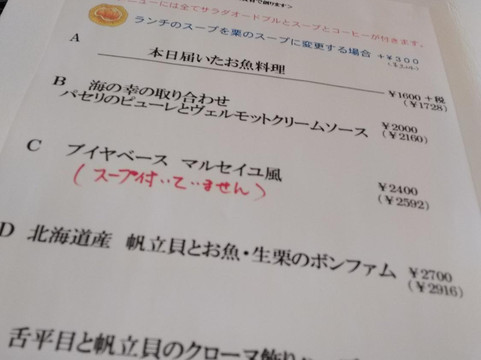 ニューには全てサラダオードブルとスープとコーヒーが付きます。
ランチのスープを栗のスープに変更する場合 +￥300
A
本日届いたお魚料理
￥1600+税
(￥1728)
B 海の幸の取り合わせ
パセリのピューレとヴェルモットクリームソース
￥2000
(￥2160)
C ブイヤベース マルセイユ風
(スープ付いていません)
￥2400
(￥2592)
D 北海道産 帆立貝とお魚・生栗のボンファム
￥2700
(￥2916)
舌平目と帆立貝のクローヌ飾り